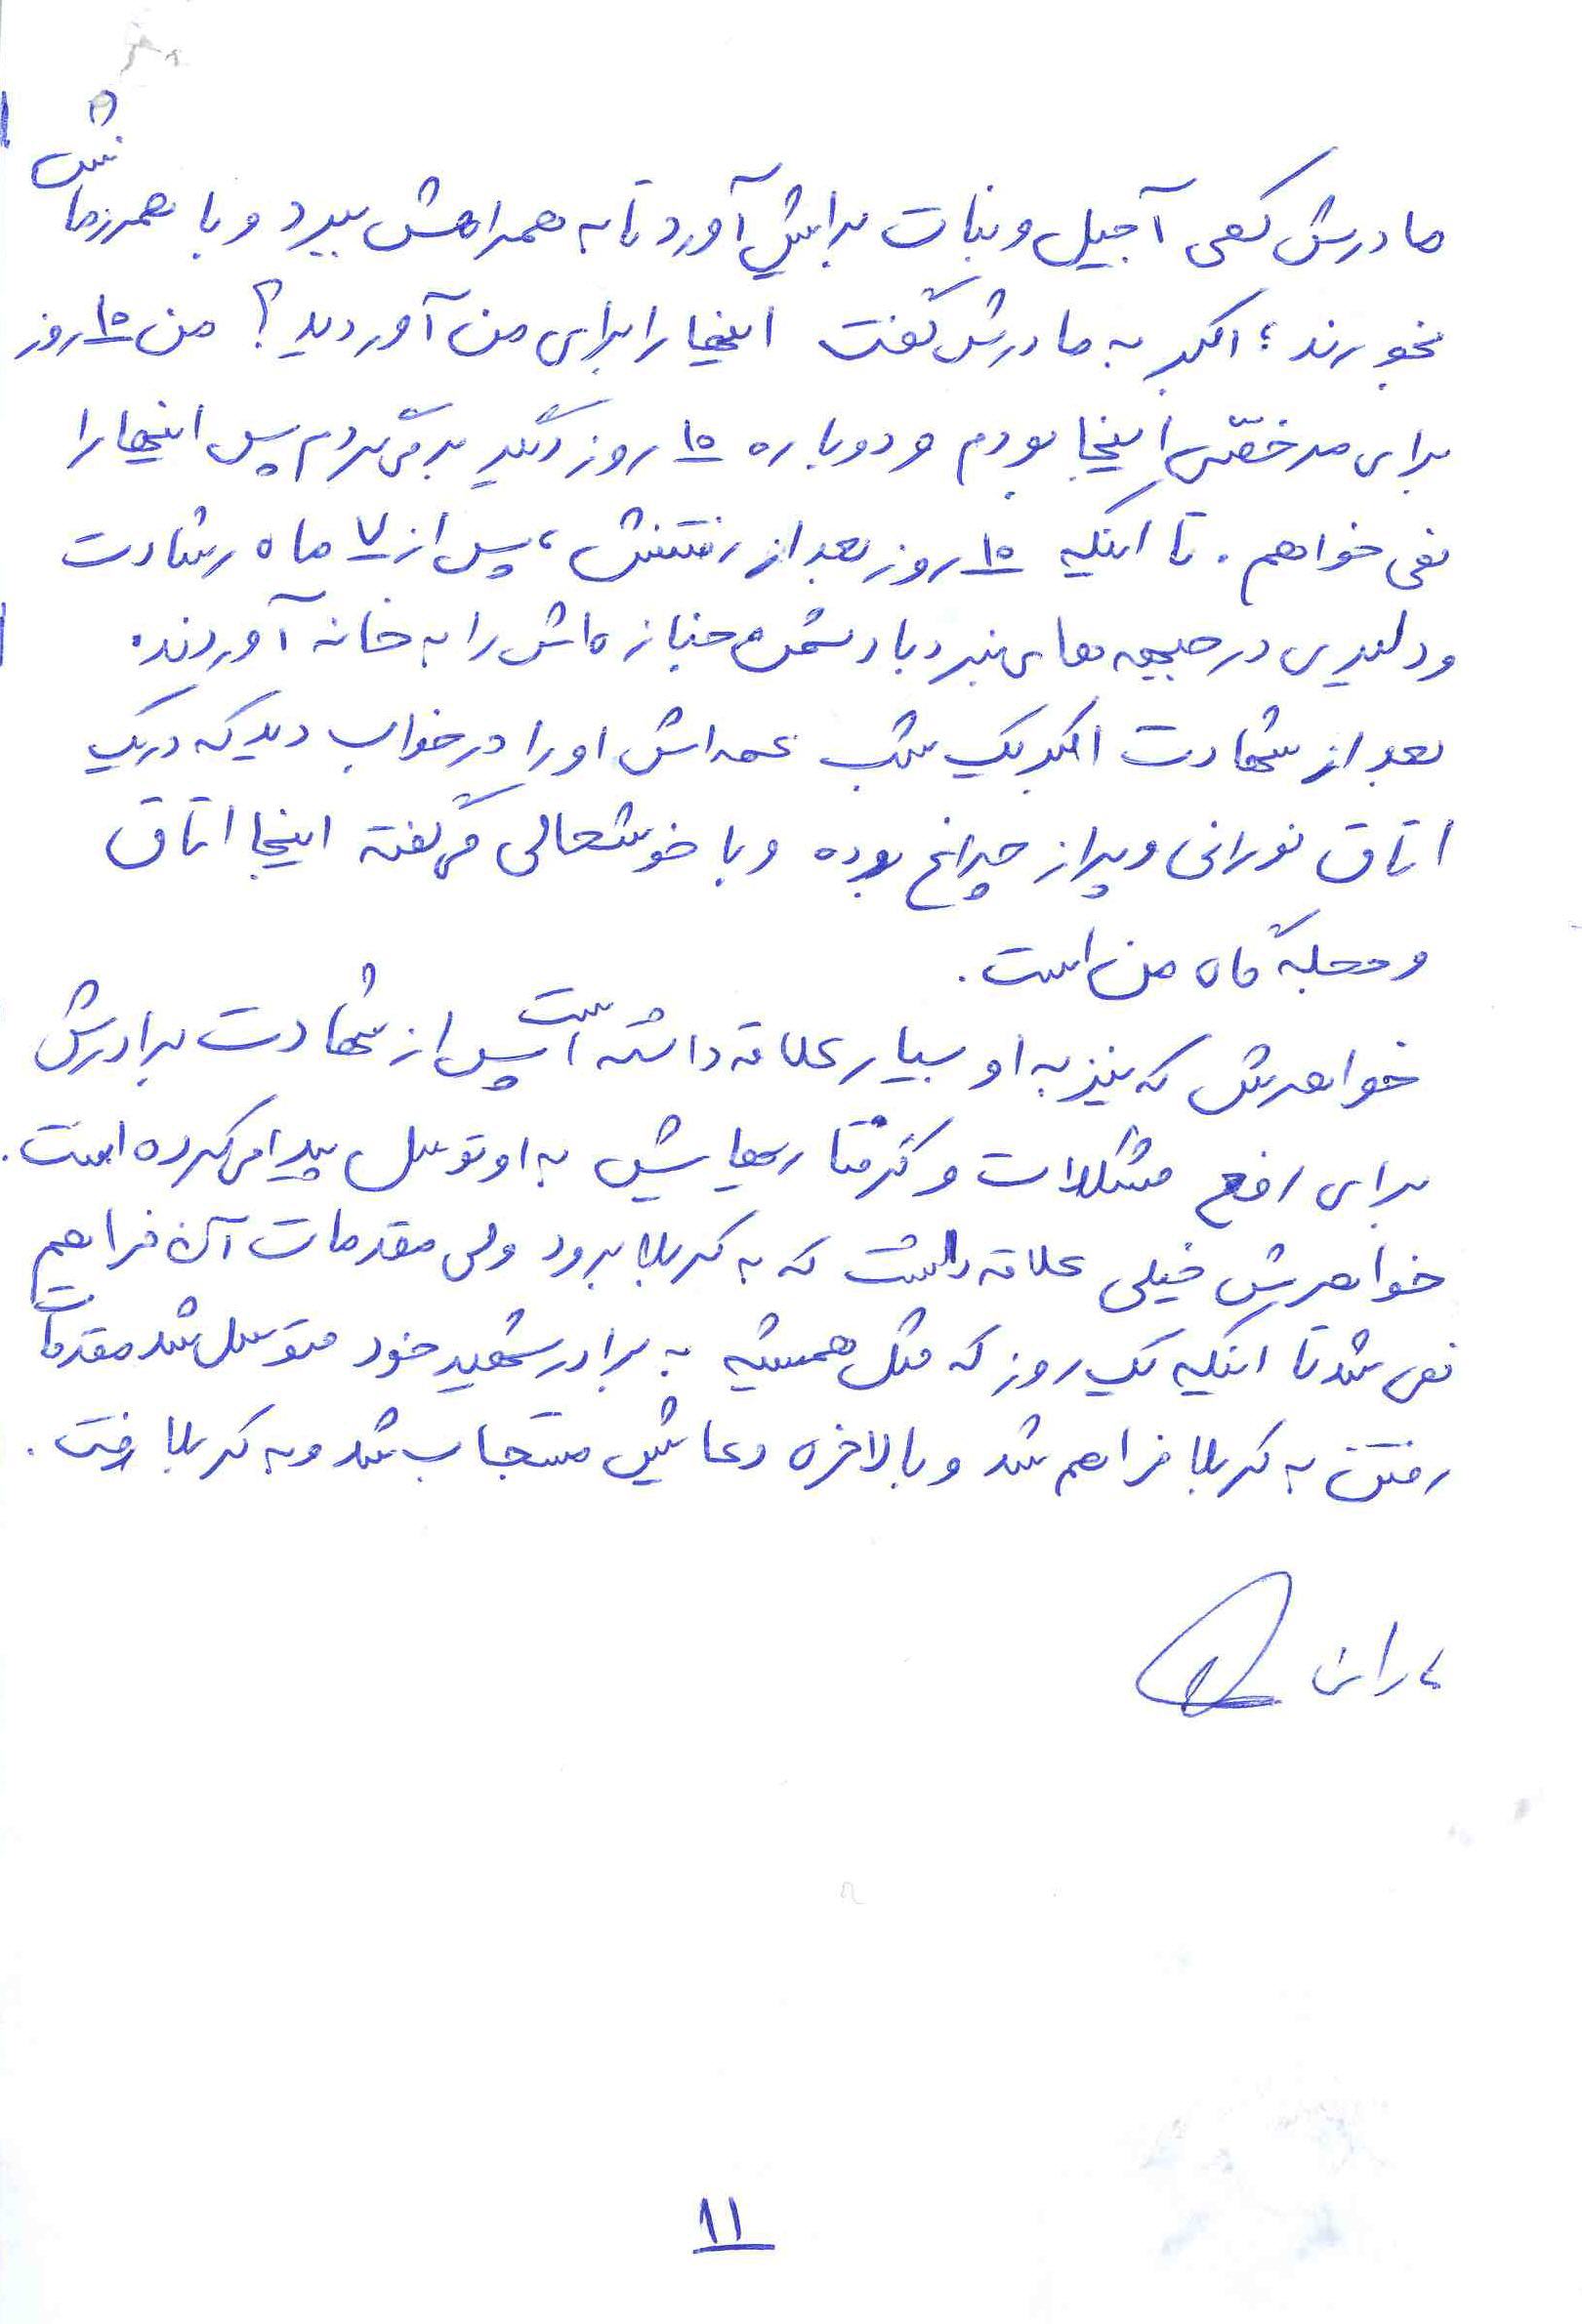 مادرش کمی آجیل و نبات برایش آورد تا به همراهش ببرد و با همرزمانش
بخورند؛ اکبر به مادرش گفت اینها را برای من آوردید؟ من ۱۵ روز
برای مرخصّی اینجا بودم و دوباره ۱۵ روز دیگر برمی‌گردم پس اینها را
نمی‌خواهم. تا اینکه ۱۵ روز بعد از رفتنش، پس از ۷ ماه رشادت
و دلیری در جبهه‌های نبرد با دشمن جنازه‌اش را به خانه آوردند.
بعد از شهادت اکبر یک شب عمه‌اش او را در خواب دید که در یک
اتاق نورانی و پر از چراغ بوده و با خوشحالی می‌گفته اینجا اتاق
و حجله‌گاه من است.
خواهرش که نیز به او بسیار علاقه داشته است پس از شهادت برادرش
برای رفع مشکلات و گرفتاریهایش به او توسل پیدا می‌کرده است.
خواهرش خیلی علاقه داشت که به کربلا برود ولی مقدمات آن فراهم
نمی‌شد تا اینکه یک روز که مثل همیشه به برادر شهید خود متوسل شد مقدمات
رفتن به کربلا فراهم شد و بالاخره دعایش مستجاب شد و به کربلا رفت.
۱۱